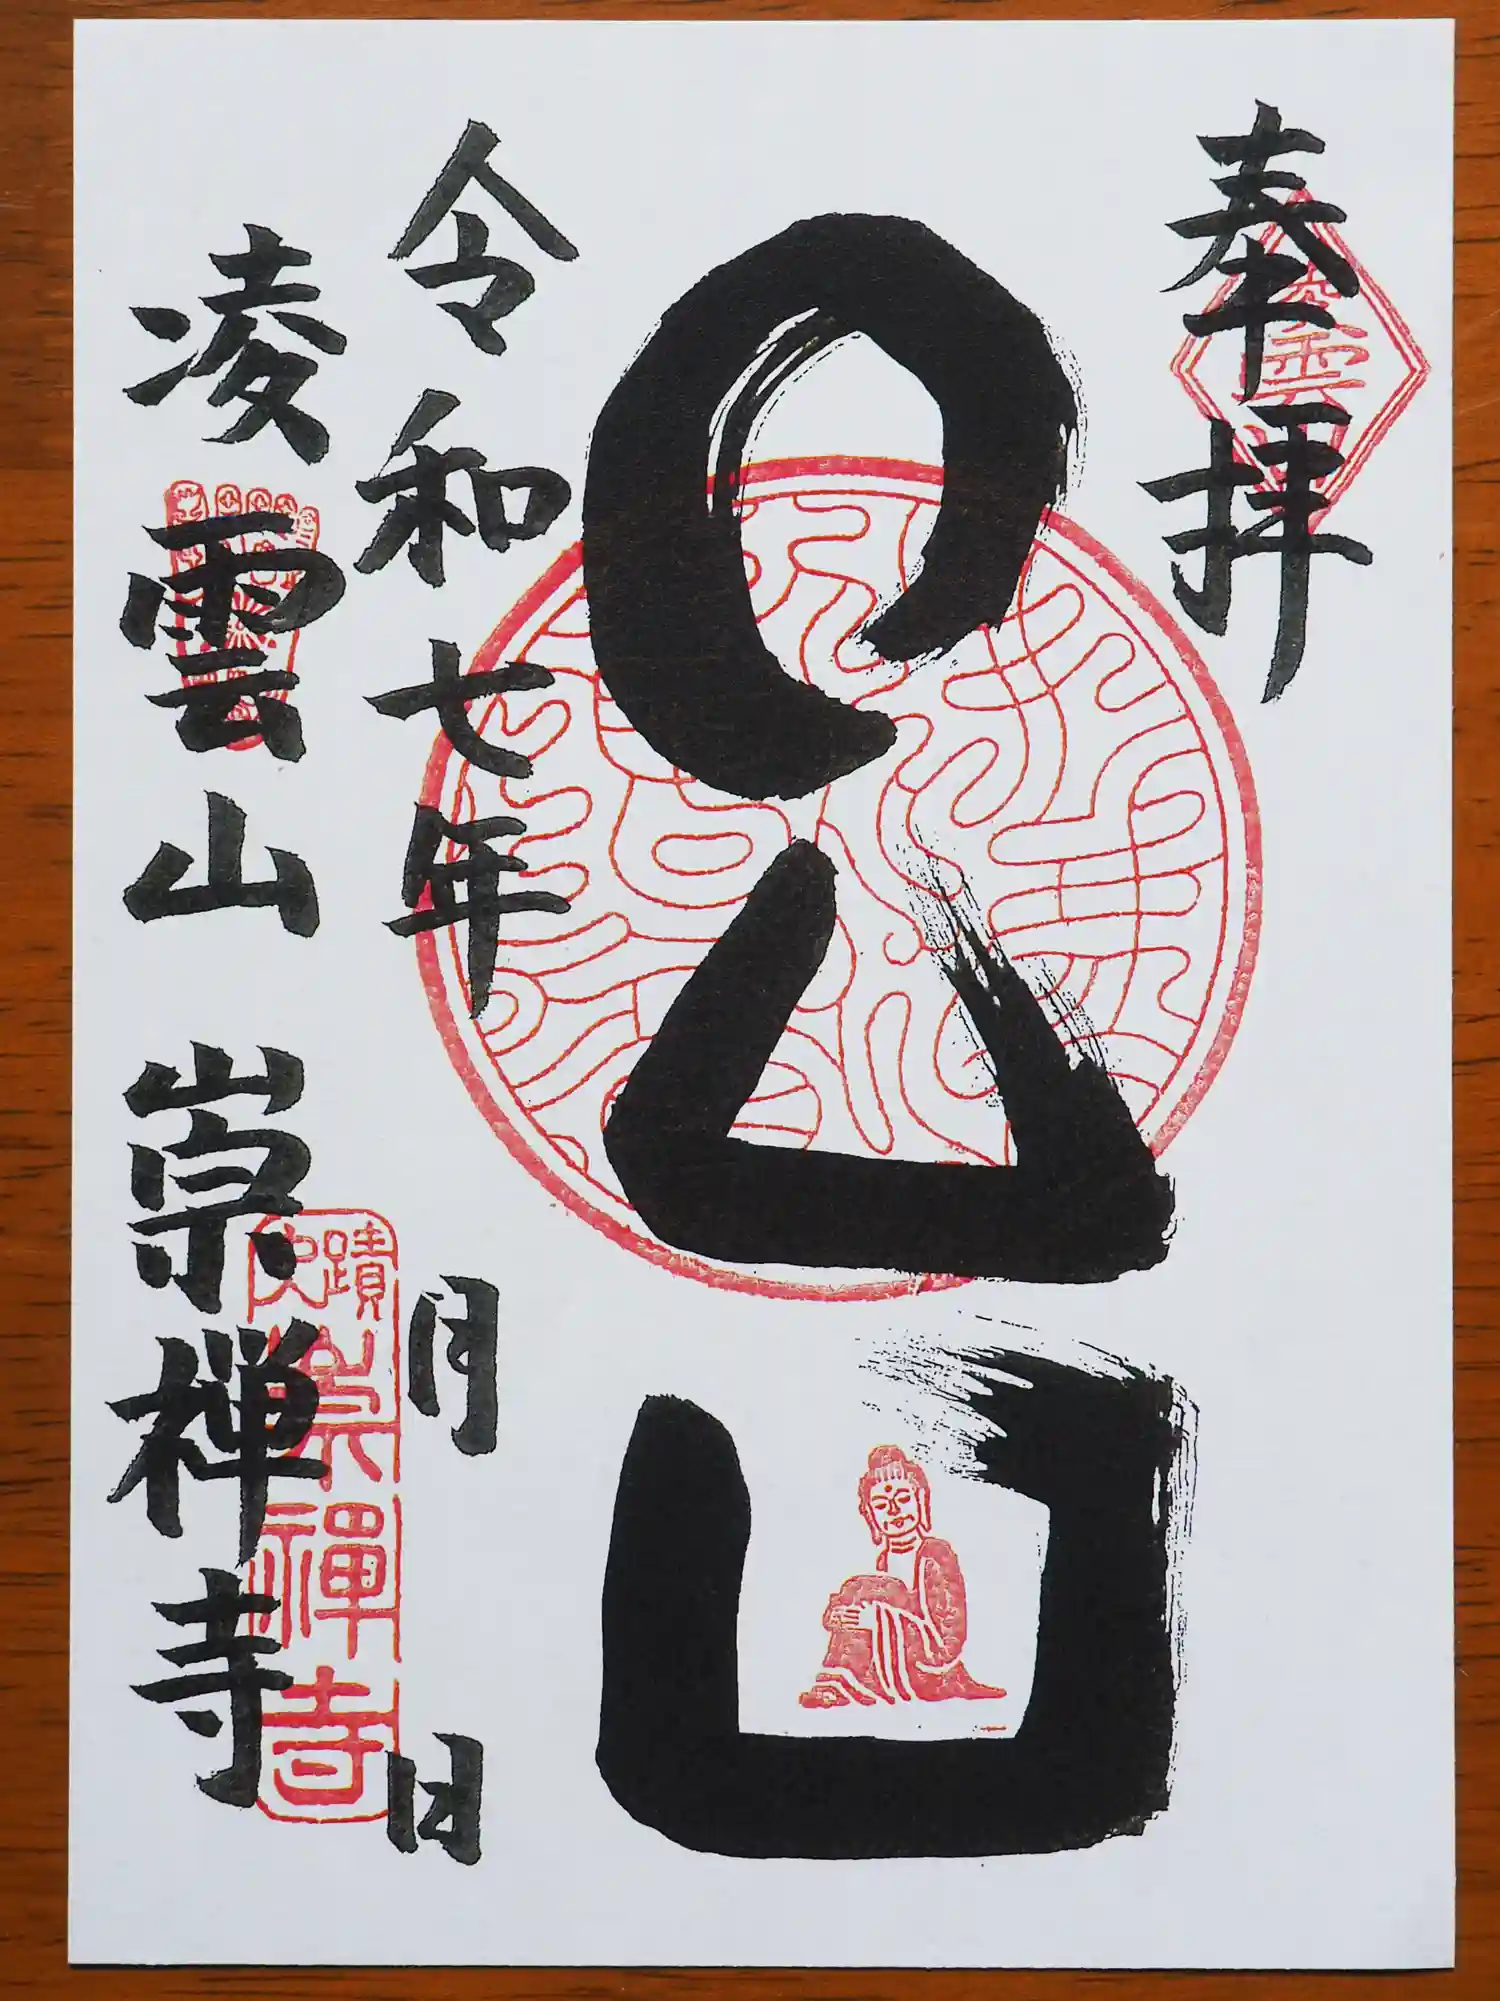 奉拝
令和七年 月 日
凌雲山 崇禅寺
史蹟
崇禪寺